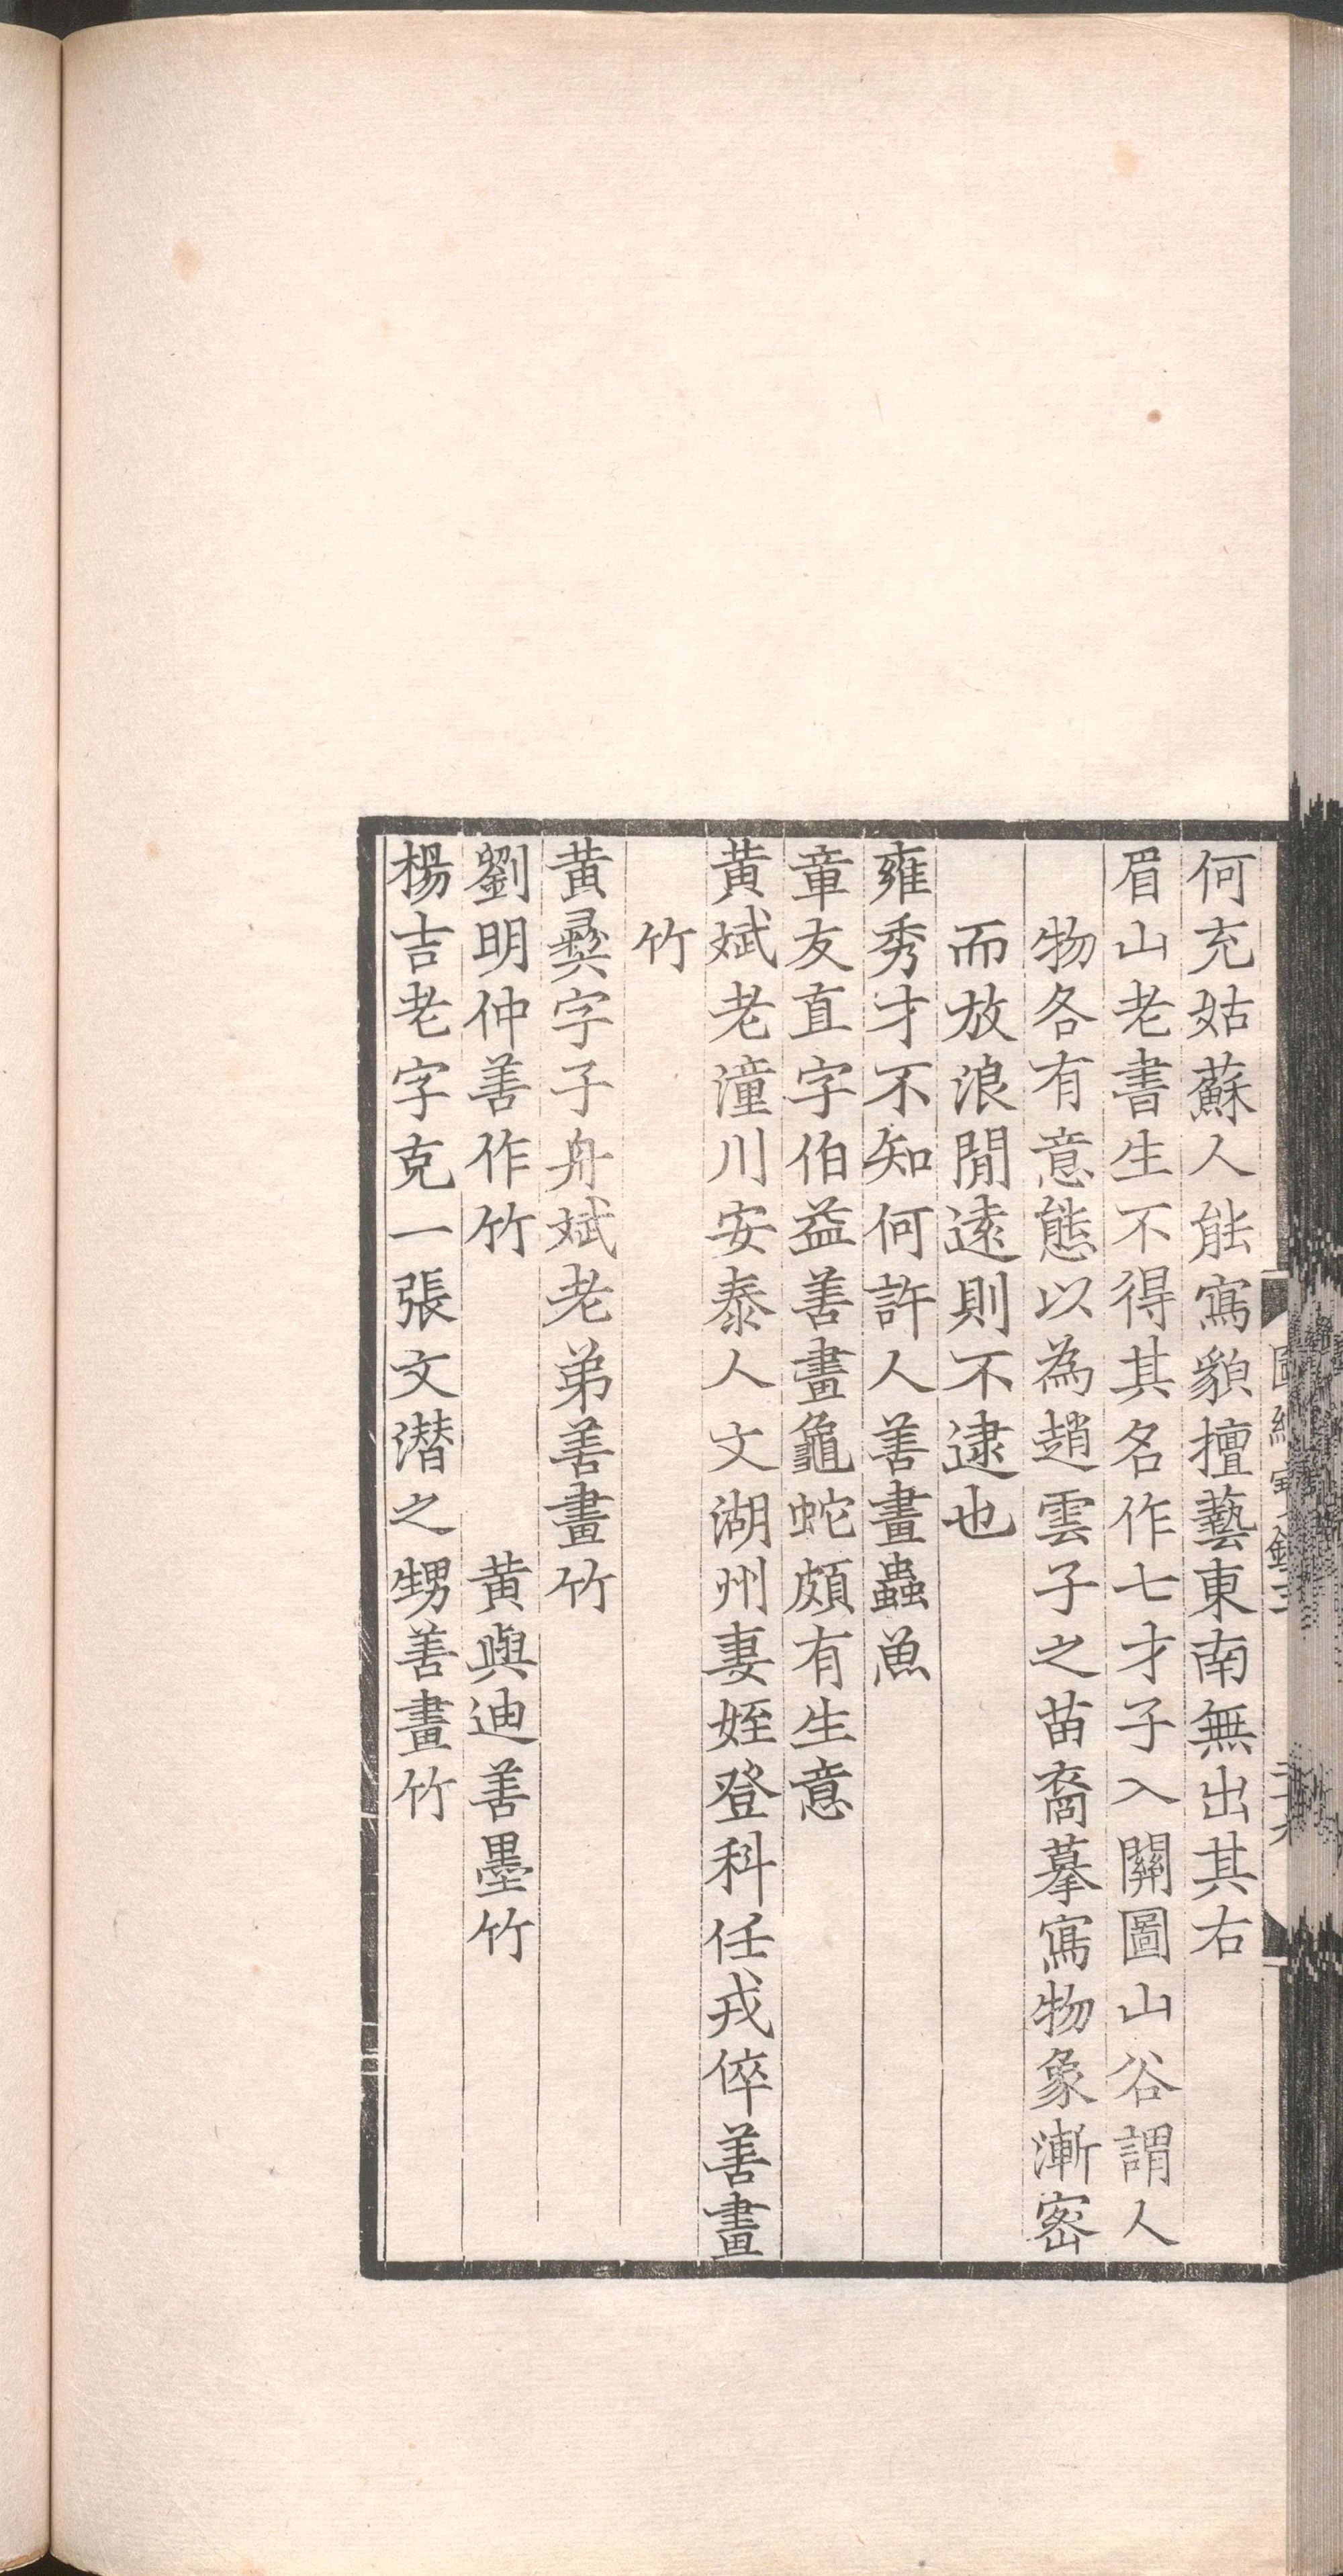 何充姑蘇人能寫貌擅藝東南無出其右
眉山老書生不得其名作七才子入關圖山谷謂人
物各有意態以為趙雲子之苗裔摹寫物象漸密
而放浪閒遠則不逮也
雍秀才不知何許人善畫蟲魚
章友直字伯益善畫龜蛇頗有生意
黃斌老潼川安泰人文湖州妻姪登科任戎倅善畫
竹
黃彝字子舟斌老弟善畫竹
劉明仲善作竹　　　　黃與迪善墨竹
楊吉老字克一張文潛之甥善畫竹